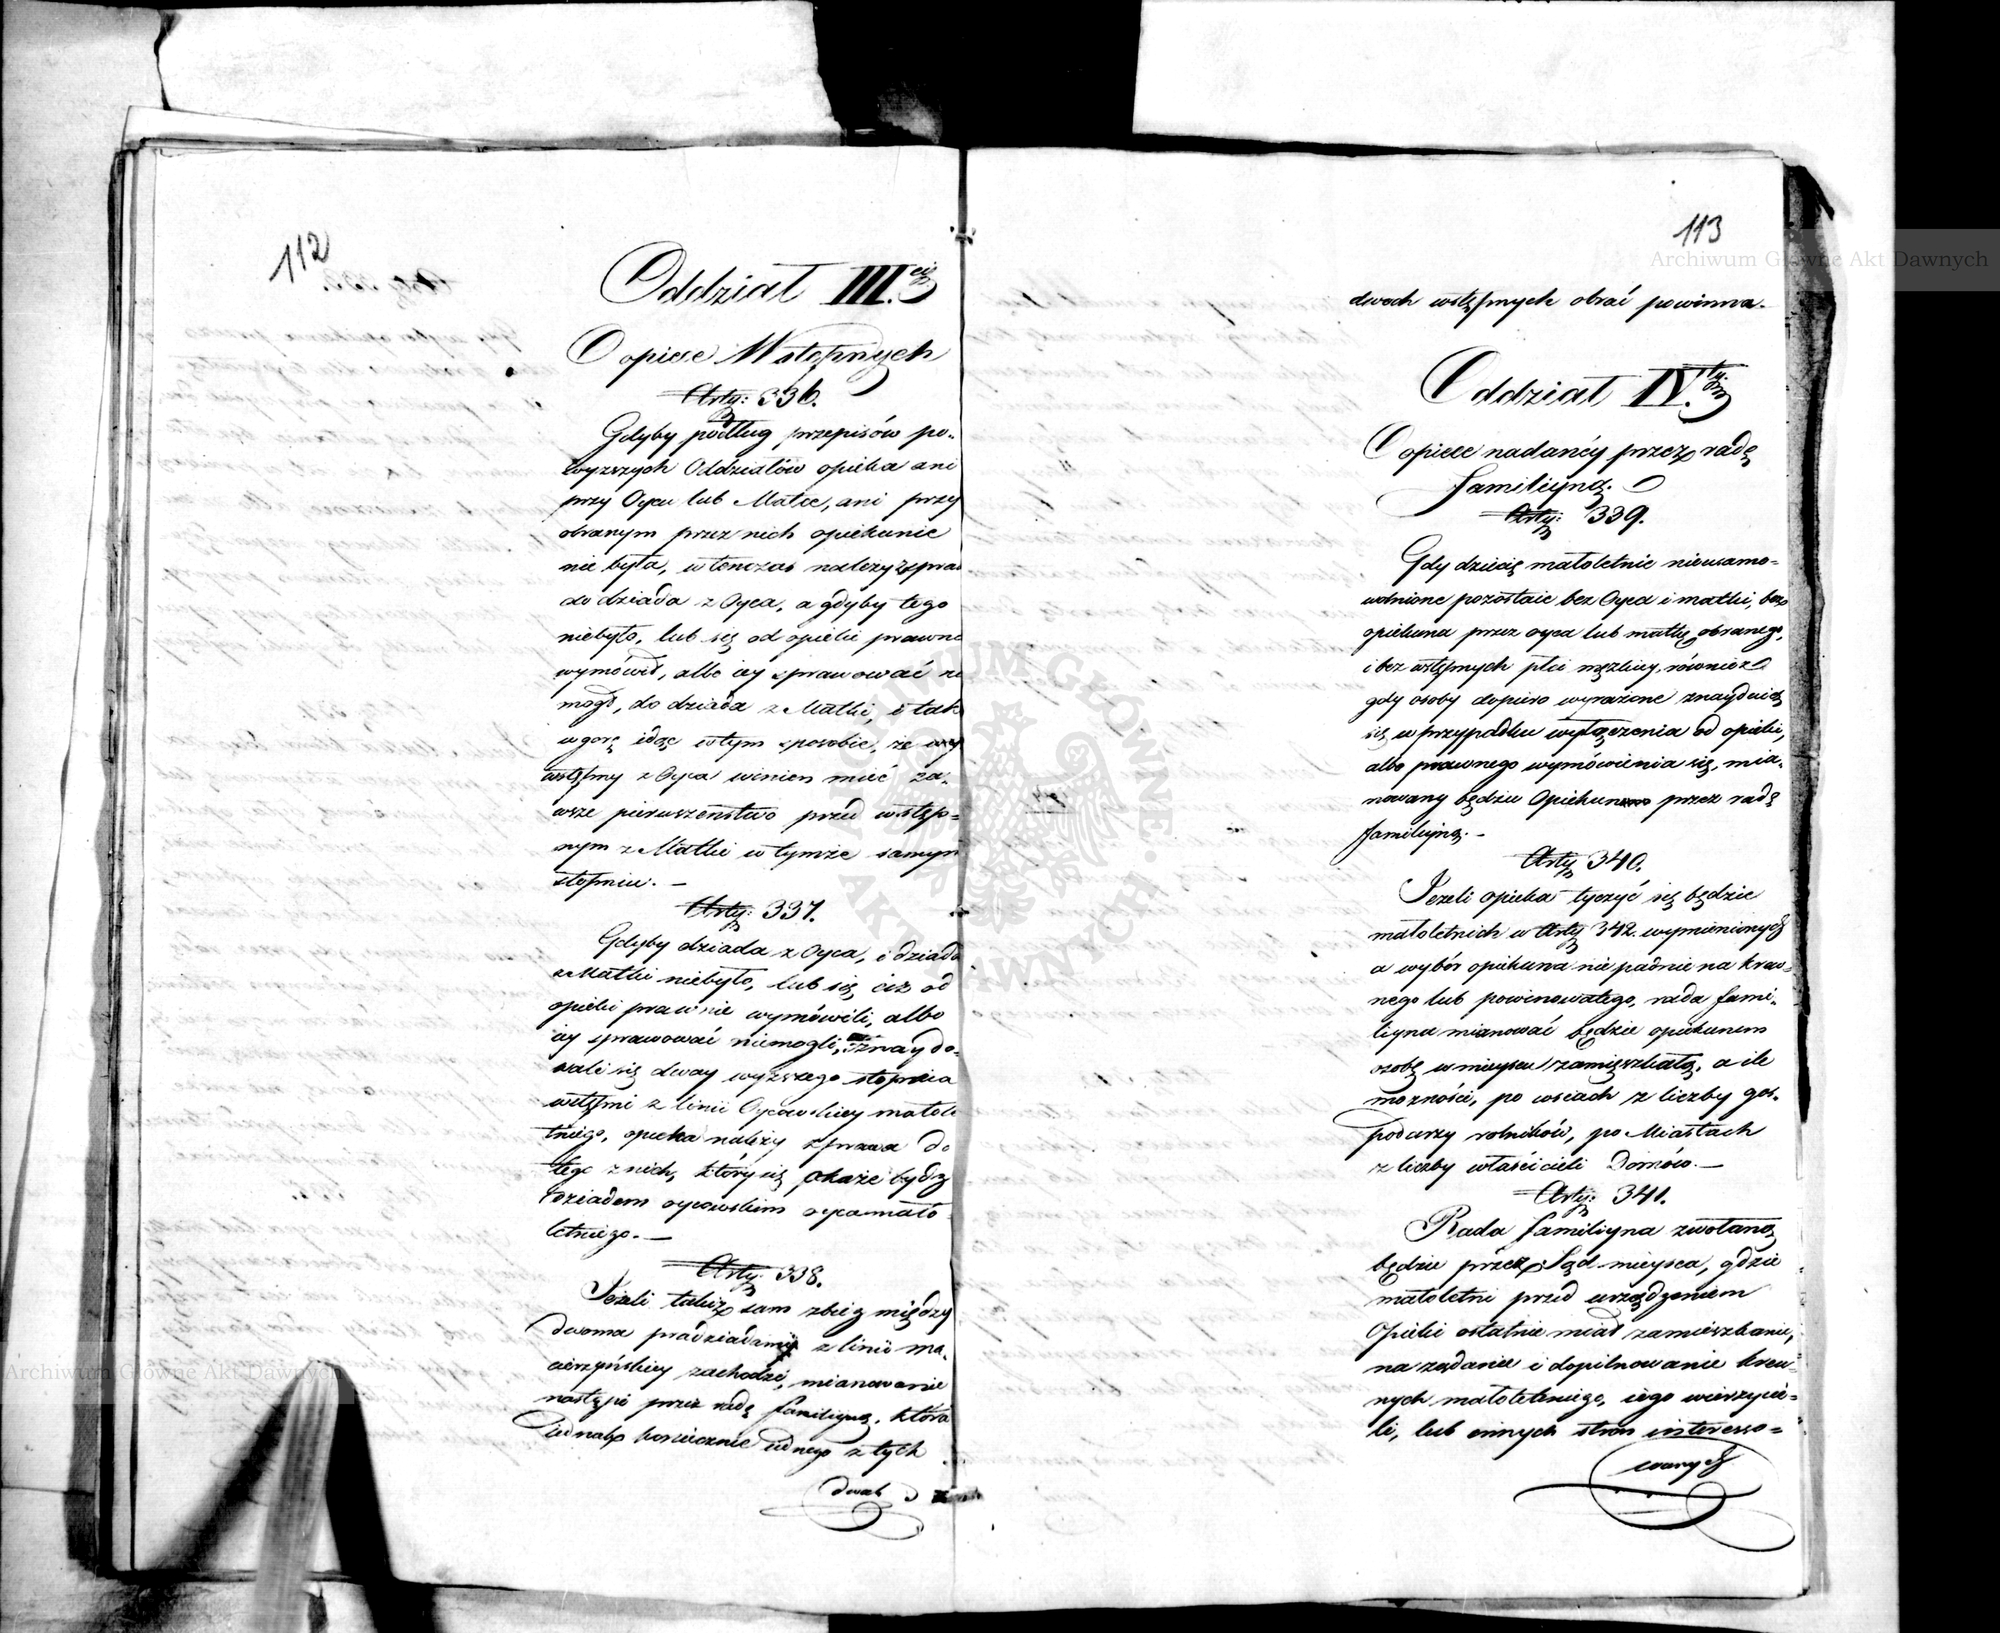 112
Oddział III.ci
O opiece Wstępnych
Arty: 336.
Gdyby podług przepisów po-
wyższych Oddziałów opieka ani
przy Oycu lub Matce, ani przy
obranym przez nich opiekunie
nie była, w tenczas należy z pra
do dziada z Oyca, a gdyby tego
niebyło, lub się od opieki prawn
wymówił, albo iey sprawować n
mógł, do dziada z Matki, i tak
w górę idąc w tym sposobie, że
wstępny z Oyca winien mieć za-
wsze pierwszeństwo przed wstęp-
nym z Matki w tymże samym
stopniu. —
Arty: 337.
Gdyby dziada z Oyca, i dziada
z Matki niebyło, lub się ciż od
opieki prawnie wymówili, albo
iey sprawować niemogli, znaydo-
wali się dway wyższego stopnia
wstępni z linii Oycowskiey małole
tniego, opieka należy z prawa do
tego z nich, który się okaże bydź
dziadem oycowskim oyca mało
letniego. —
Arty: 338.
Jeżeli takiż sam zbieg między
dwoma pradziadami z linii ma-
cierzyńskiey zachodzi, mianowanie
nastąpi przez radę familiyną, która
iednak koniecznie iednego z tych
dwóch
113
dwoch wstępnych obrać powinna.
Oddział IV.ty
O opiece nadanéy przez radę
familiyną.
Arty: 339.
Gdy dziecię małoletnie nieusamo-
wolnione pozostaie bez Oyca i matki, bez
opiekuna przez oyca lub matkę obranego,
i bez wstępnych płci męzkiey, również
gdy osoby dopiero wyrażone znayduią
się w przypadku wyłączenia od opieki,
albo prawnego wymówienia się, mia-
nowany będzie Opiekun przez radę
familiyną. –
Arty 340.
Jeżeli opieka tyczyć się będzie
małoletnich w Arty 342. wymienionych
a wybór opiekuna nie padnie na krew-
nego lub powinowatego, rada fami-
liyna mianować będzie opiekunem
osobę w mieyscu zamieszkałą, a ile
możności, po wsiach z liczby gos-
podarzy rolników, po Miastach
z liczby właścicieli Domów. —
Arty: 341.
Rada familiyna zwołaną
będzie przez Sąd mieysca, gdzie
małoletni przed urządzeniem
Opieki ostatnie miał zamieszkanie,
na żądanie i dopilnowanie krew-
nych małoletniego, iego wierzycie-
li, lub innych stron interesso-
wanych
Archiwum Główne Akt Dawnych
Archiwum Główne Akt Dawnych
ARCHIWUM GŁÓWNE AKT DAWNYCH